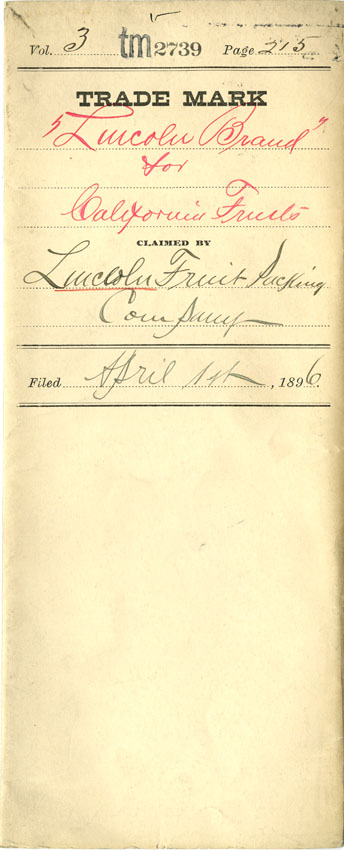 Vol. 3 tm 2739 Page 215
TRADE MARK
"Lincoln Brand"
for
California Fruits
CLAIMED BY
Lincoln Fruit Packing
Company
Filed April 1st, 1896.